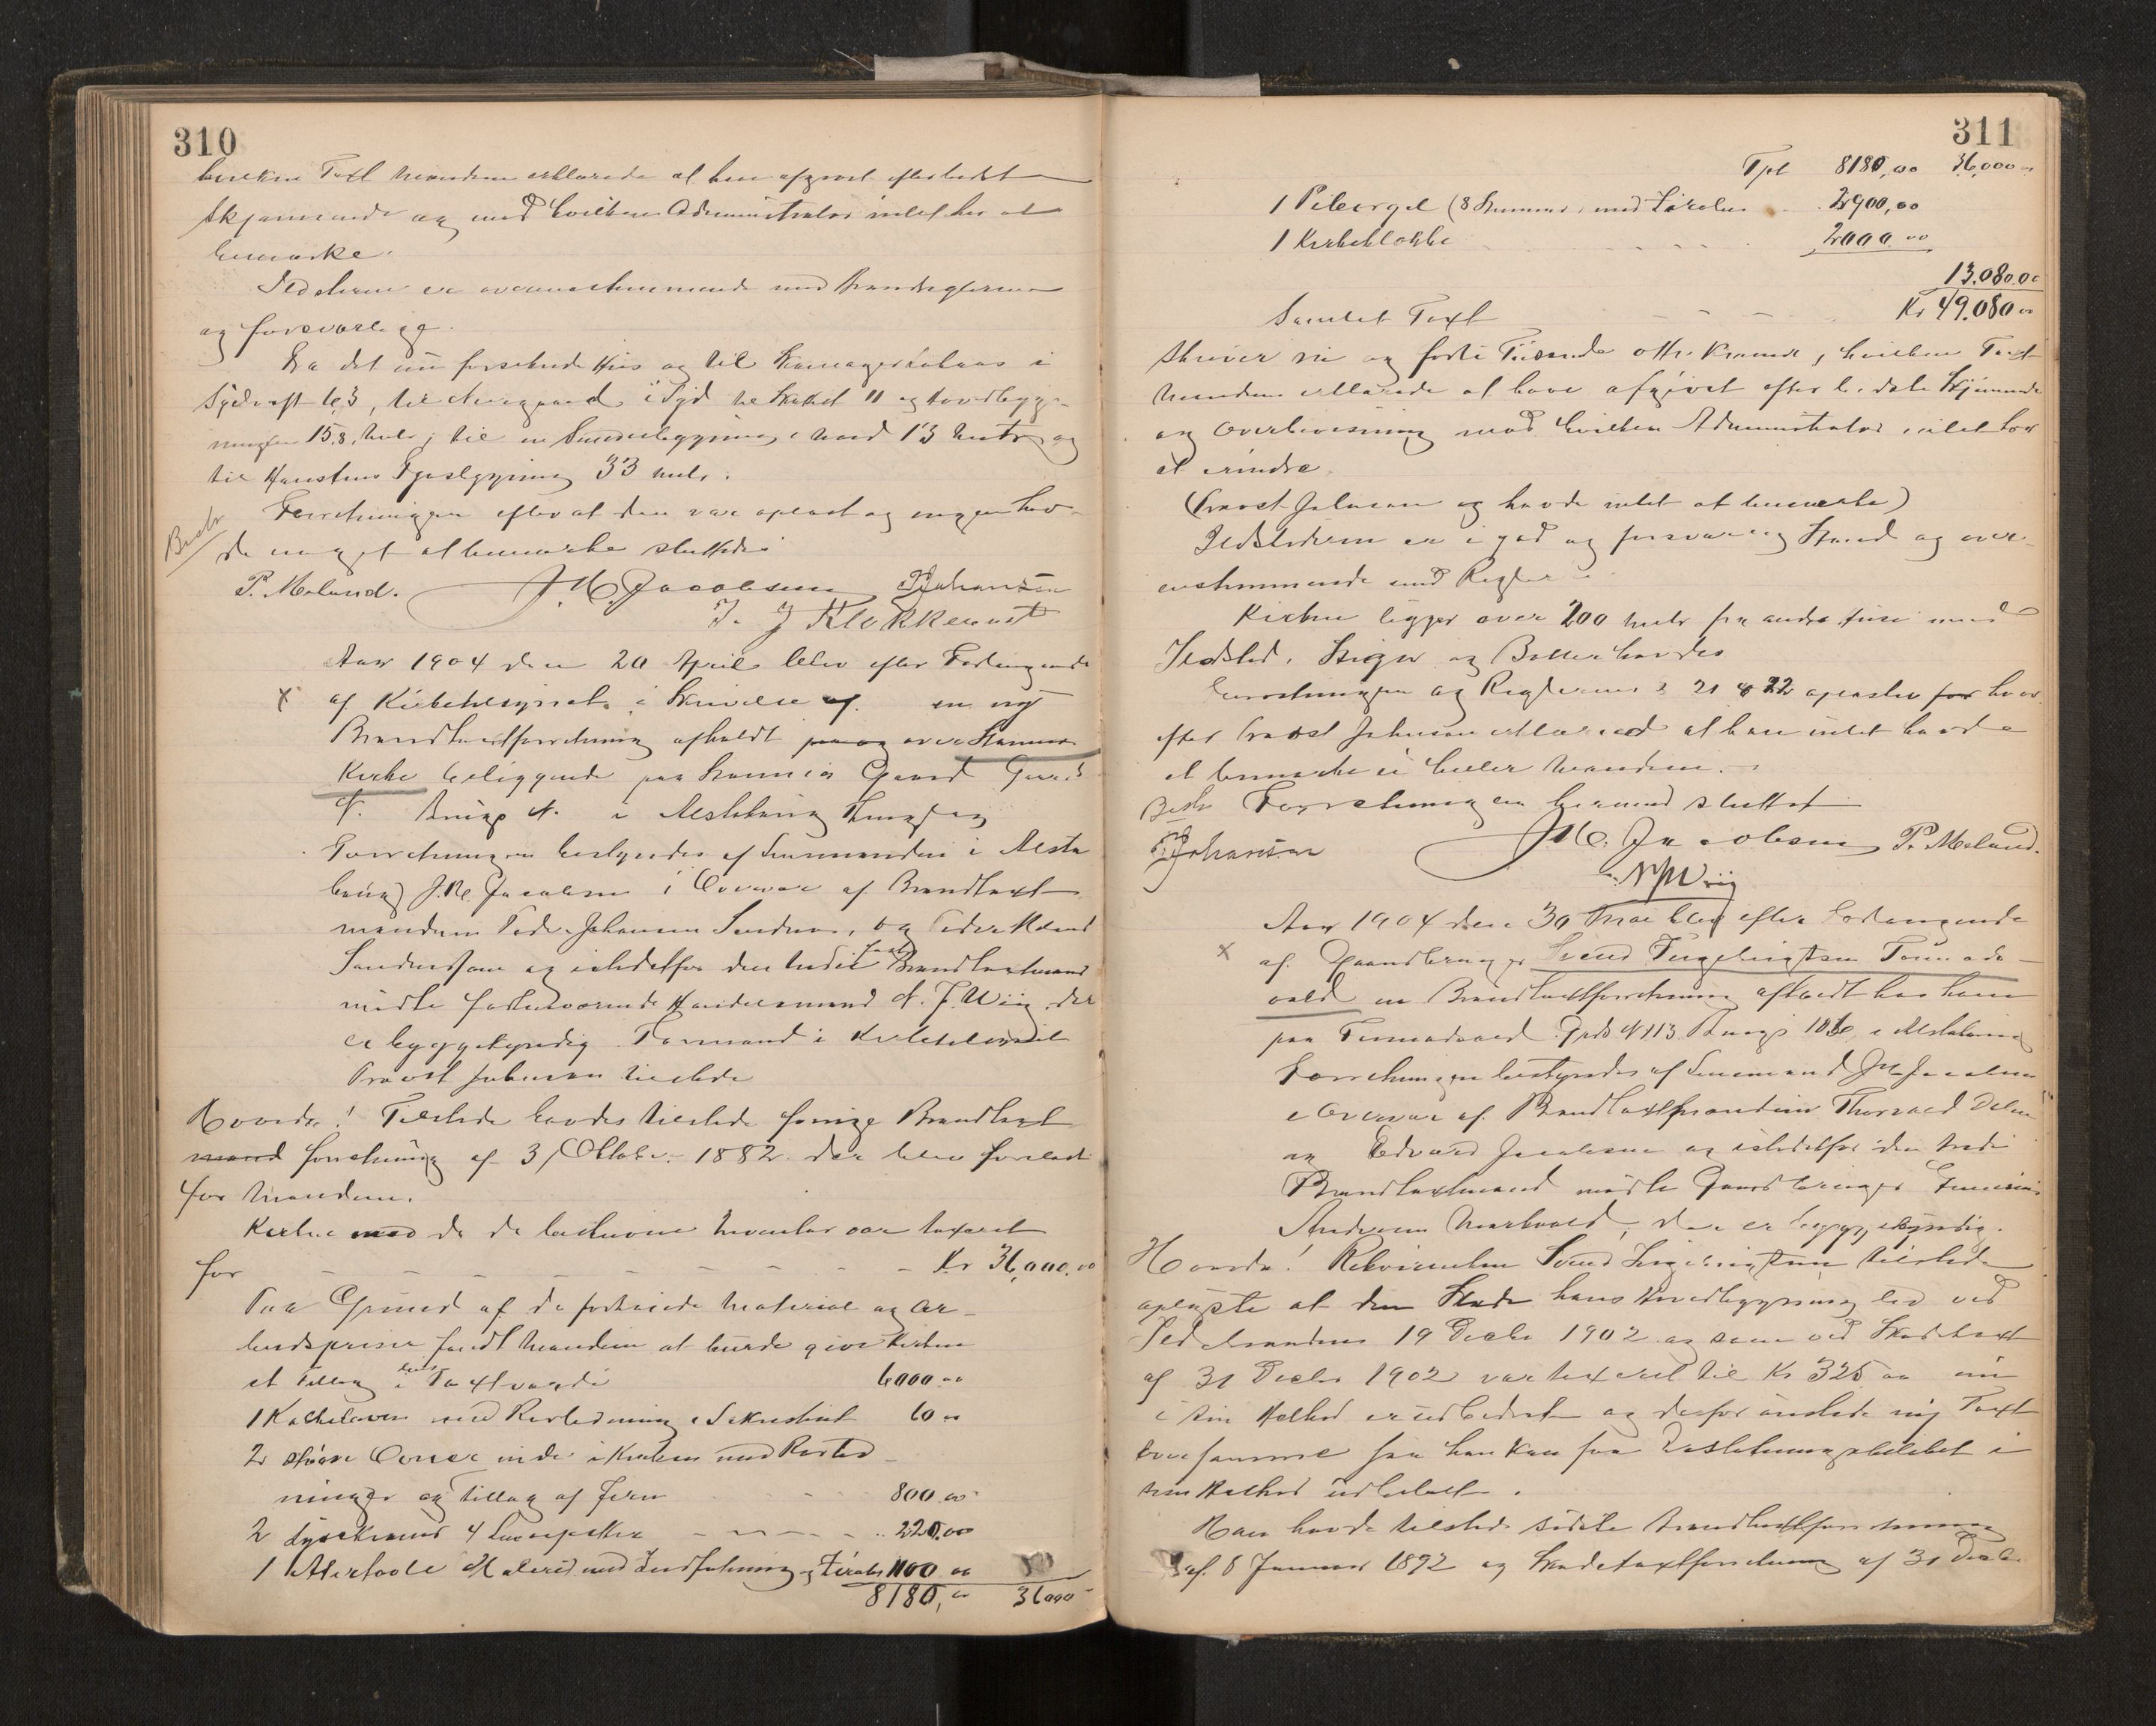 310
Taxt mændene erklærede at have afgivet efter bedst
Skjønnende og med hvilken Administrator intet har at
bemærke.
Ildstederne er overensstemmende med Brandreglerne
og forsvarlige.
Fra det nu forsikrede Huus og til i
Sydvest 6,3, til i Syd og Hovedbygg-
ningen 15,8 meter, til en bygning i Nord 13 meter og
til bygning 33 meter.
Forretningen efter at den var oplæst og ingen hav-
de noget at bemærke sluttedes
Bestr
P. Meland. J. M. Jacobsen P Johansen
J. J Klokkervost
Aar 1904 den 20 April blev efter Forlangende
x af Kirketilsynet i Skrivelse af en ny
Brandtaxtforretning afholdt paa og over Stamnes
Kirke beliggende paa Gaard Gaards
N. Brugs N. i Alstahoug Thinglag
Forretningen bestyredes af Lensmanden i Alsta
houg J. M. Jacobsen i Overvær af Brandtaxt
mændene Peder Johansen Sandnes, og Peder Meland
Sandnessjøen og istedetfor den tredie faste Brandtaxtmand
mødte forhenværende Handelsmand N. J. Wiig, der
er byggekyndig Formand i Kirketilsynet
Provst Johnson tilstede
Hvorda! Tilstede havdes tilstede forrige Brandtaxt
mand forretning af 31 Oktober 1882 der blev forelæst
for Mændene.
Kirken med de da beskrevne Inventar var taxeret
for - - - - - - - Kr 36,000,00
Paa Grund af de forhøiede Material og Ar-
beidspriser fandt Mændene at burde give Kirken
et Tillæg i Taxtværdi 6000 00
1 Kakkelovn med Rørledning i Sakristiet 60 00
2 større Ovne inde i Kirken med Rørled-
ninger og tillæg af Jern - - - 800 00
2 Lysekroner 4 - - - - 220,00
1 Altertavle Maleri med Indfatning og Zirater 1100 00
8180,00 36000

311
Tpt 8180,00 36,000 00
1 Pibeorgel (8 Stemmer) med Zirater - - 2900,00
1 Kirkeklokke - - - - 2000 00
13.080,00
Samlet Taxt - - - - Kr 49.080 00
Skriver ni og førti Tusende otti Kroner, hvilken Taxt
Mændene erklærede at have afgivet efter bedste Skjønnende
og Overbevisning med hvilken Administrator intet har
at erindre.
(Provst Johnson og havde intet at bemærke)
Ildstederne er i god og forsvarlig Stand og over-
ensstemmende med Reglerne
Kirken ligger over 200 meter fra andre Huse med
Ildsted. Stiger og Bøtter havdes
Forretningen og Reglernes § 21 og 22 oplæstes for hvor
efter Provst Johnson erklæred at han intet havde
at bemærke ei heller Mændene.
Bestr Forretningen hermed sluttet
P Johansen J. M. Jacobsen P. Meland.
N J Wiig
Aar 1904 den 30 Mai blev efter Forlangende
x af Gaardbruger Svend Ingebrigtsen Tennada-
vald en Brandtaxtforretning afholdt hos ham
paa Gards N 113 Brugs i Alstahoug
Forretningen bestyredes af Lensmand J M Jacobsen
i Overvær af Brandtaxtmændene Thorvald
og Edvard Jacobsen og istedetfor den tredie
Brandtaxtmand mødte Gaardbruger
Andersen der er byggekyndig.
Hvorda! Rekvirenten Svend Ingebrigtsen tilstede
oplyste at den Skade hans Hovedbygning led ved
Ildebranden 19 Decbr 1902 og som ved Skadetaxt
af 31 Decbr 1902 var taxeret til Kr 325 00 nu
i sin Helhed er udbedret og derfor ønskede ny Taxt
over samme saa han kan faa Erstatningsbeløbet i
sin Helhed udbetalt.
Man havde tilstede sidste Brandtaxtforretning
af 8 Januar 1892 og Skadetaxtforretning af 31 Decbr